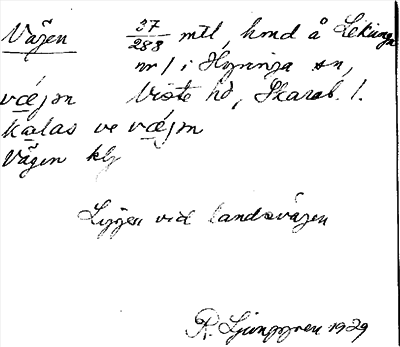 Vägen 37/283 mtl, hmd å Lekunga
nr 1 i Hyringa sn,
væjɘn Viste hd, Skarab. l.
kalas ve væjɘn
Vägen kls
Ligger vid landsvägen
R. Ljunggren 1929